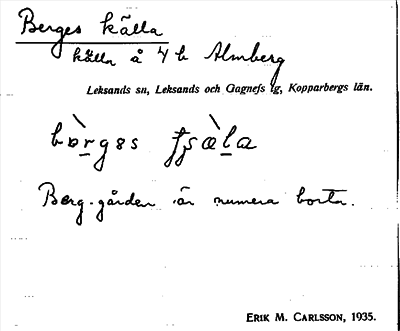 Berges källa
källa å 4 h Almberg
Leksands sn, Leksands och Gagnefs tg, Kopparbergs län.
Berg-gården är numera borta.
ERIK M. CARLSSON, 1935.